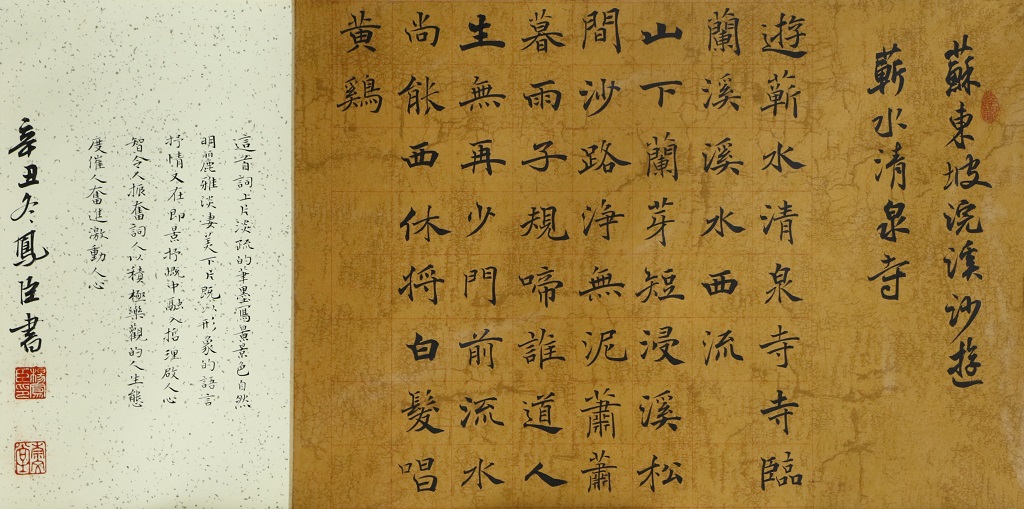 蘇東坡浣溪沙遊
蘄水清泉寺
遊蘄水清泉寺寺臨
蘭溪溪水西流
山下蘭芽短浸溪松
間沙路淨無泥蕭蕭
暮雨子規啼誰道人
生無再少門前流水
尚能西休將白髮唱
黃鷄
這首詞上片淡疏的筆墨寫景景色自然
明麗雅淡凄美下片既以形象的語言
抒情又在即景抒慨中融入哲理啟人心
智令人振奮詞人以積極樂觀的人生態
度催人奮進激動人心
辛丑冬鳳臣書
楊鳳臣印